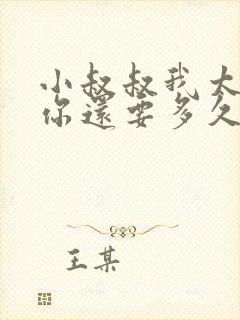 小叔叔我太
你還要多久
王某